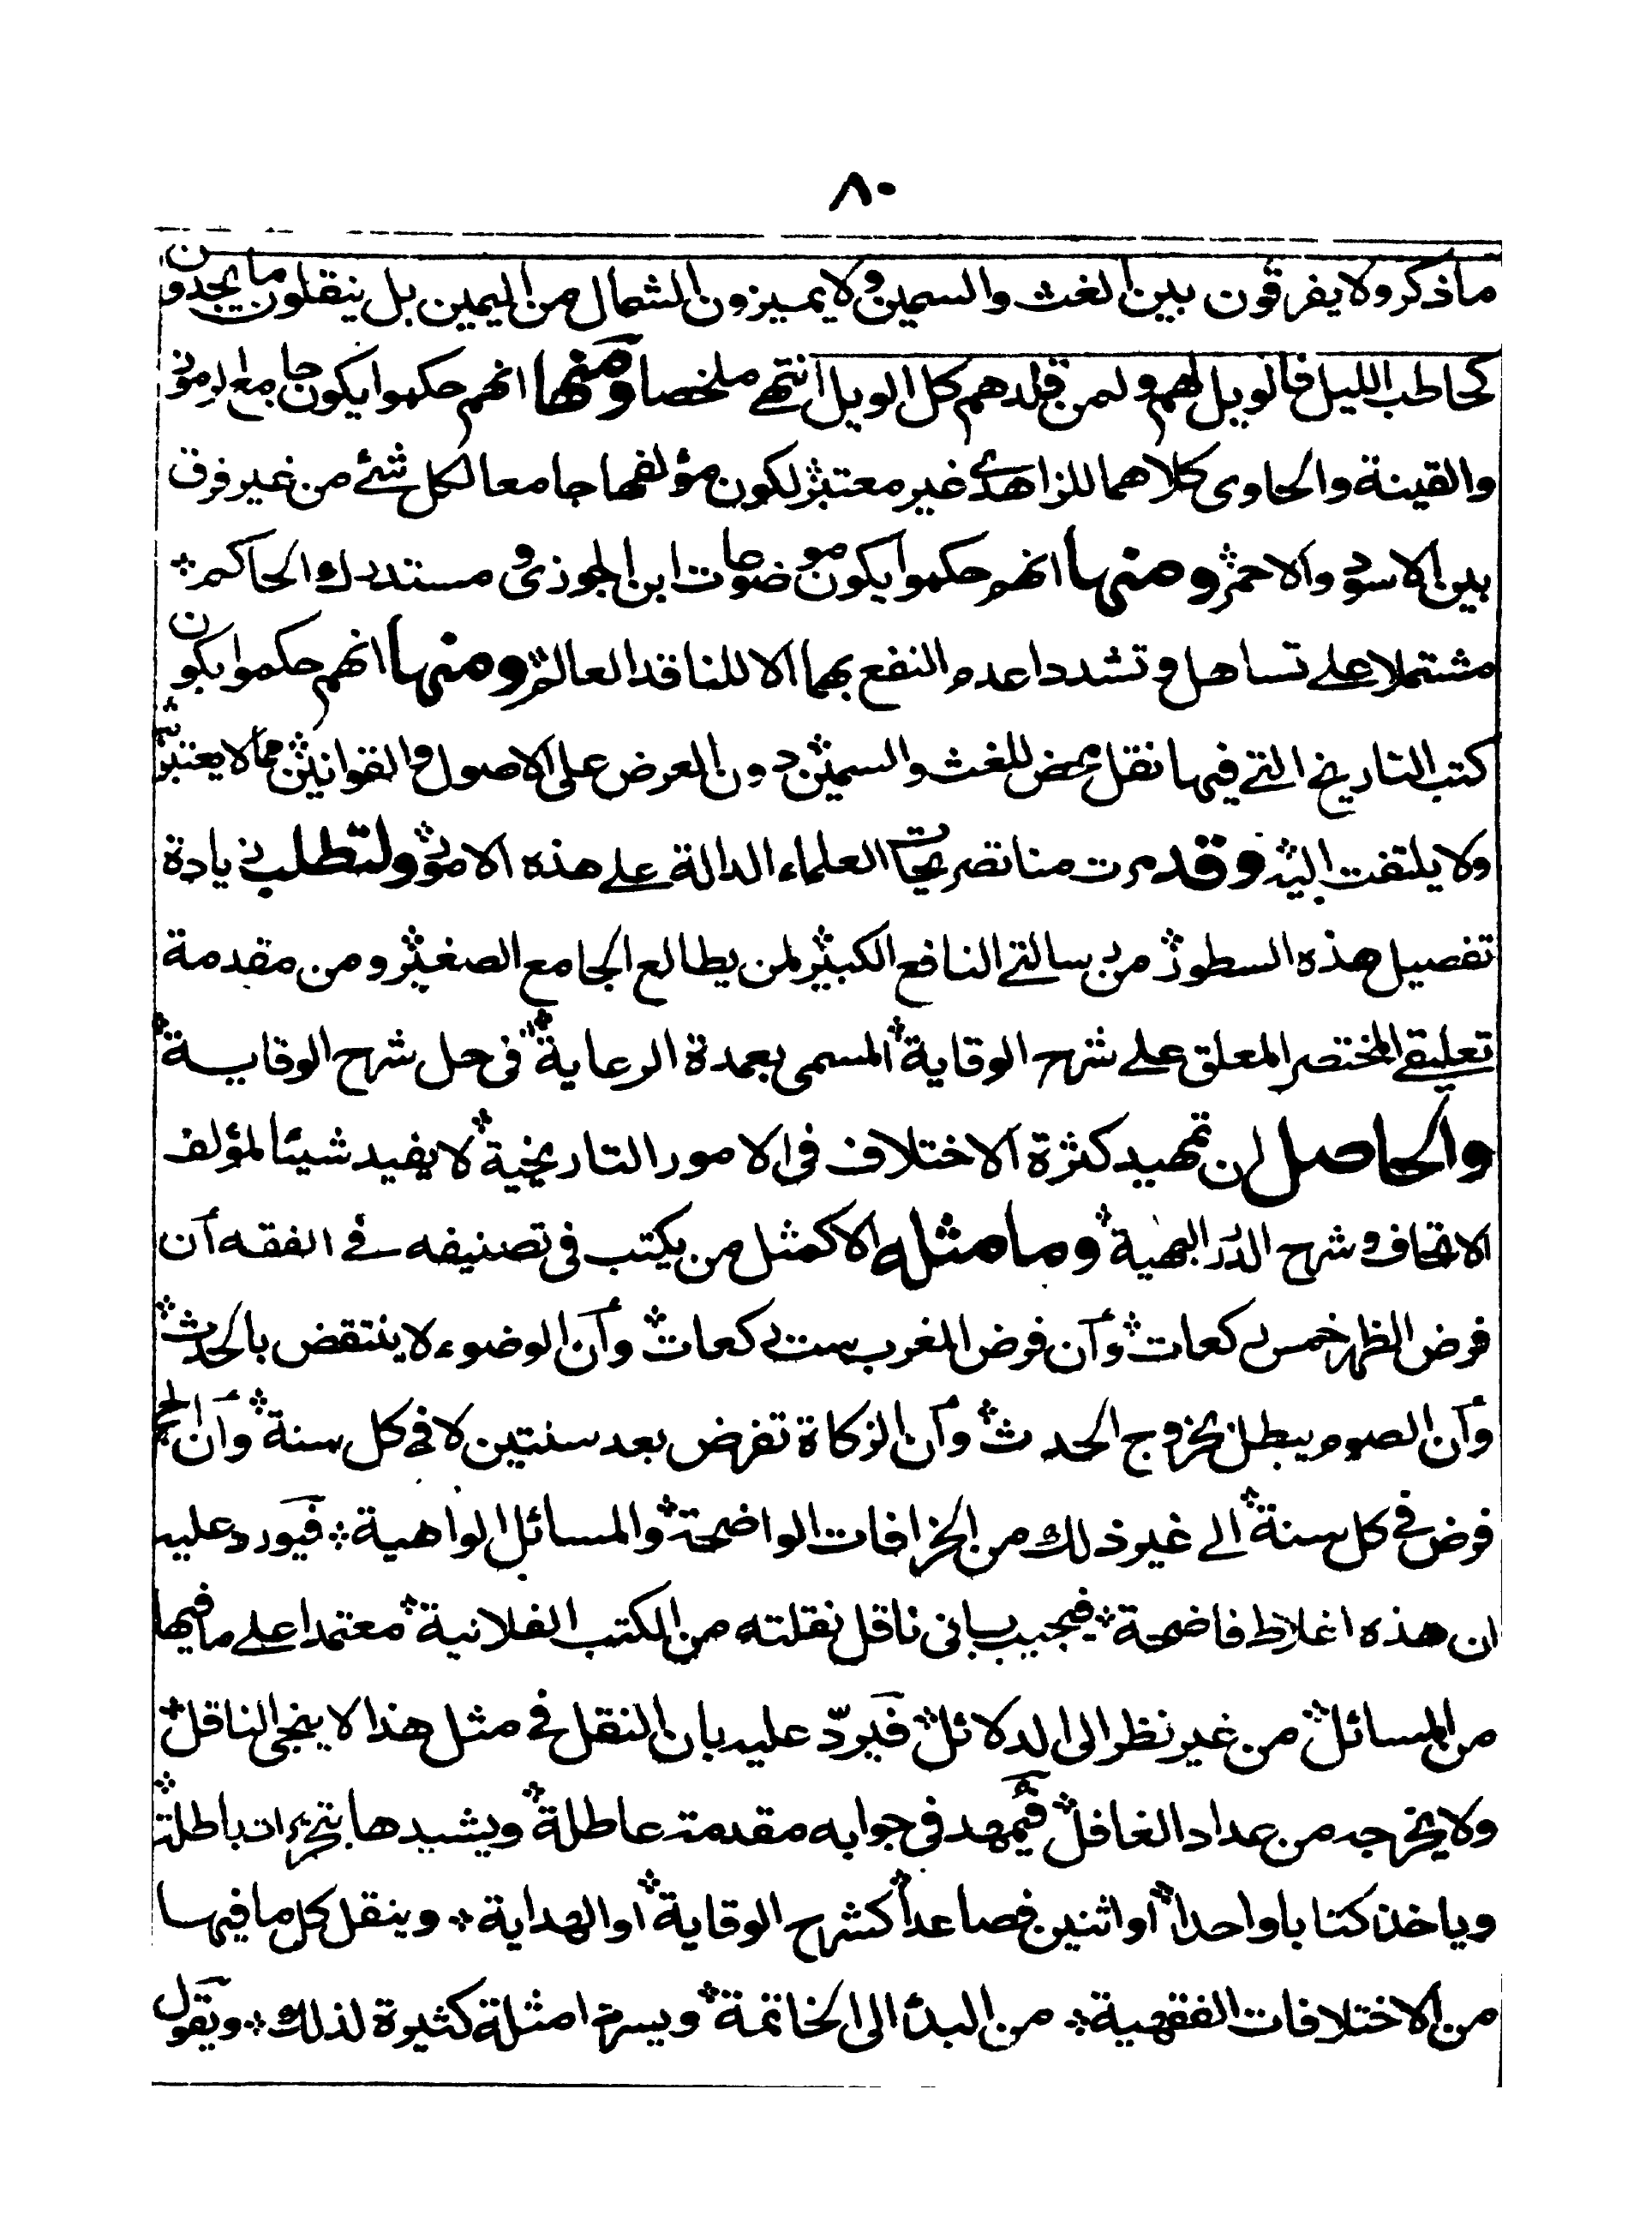 ٨٠
ما ذكر ولا يفرقون بين الغث والسمين ولا يميزون الشمال من اليمين بل ينقلون ما يجدون
كحاطب الليل فالويل لهم ولمن قلدهم كل الويل انتهى ملخصا ومنها انهم حكموا بكون جامع الرموز
والقينة والحاوى كلاهما للزاهدى غير معتبر لكون مؤلفها جامعا لكل شئ من غير فرق
بين الاسود والاحمر ومنها انهم حكموا بكون موضوعات ابن الجوزى ومستدرك الحاكم
مشتملا على تساهل وتشدد اعدم النفع بهما الا للناقد العالم ومنها انهم حكموا بكون
كتب التاريخ التى فيها نقل محض للغث والسمين دون العرض على الاصول والقوانين مما لا يعتبر به
ولا يلتفت اليه وقد مرت منا تصريحات العلماء الدالة على هذه الامور ولتطلب زيادة
تفصيل هذه السطور من رسالتى النافع الكبير لمن يطالع الجامع الصغير ومن مقدمة
تعليقى المختصر المعلق على شرح الوقاية المسمى بعمدة الرعاية فى حل شرح الوقاية
والحاصل ان تمهيد كثرة الاختلاف فى الامور التاريخية لا يفيد شيئا لمؤلف
الاتحاف وشرح الدرر البهية وما مثله الا كمثل من يكتب فى تصنيفه فى الفقه أن
فرض الظهر خمس ركعات وأن فرض المغرب ست ركعات وأن الوضوء لا ينتقض بالحدث
وأن الصوم يبطل بخروج الحدث وأن الزكاة تفرض بعد سنتين لا فى كل سنة وأن الحج
فرض فى كل سنة الى غير ذلك من الخرافات الواضحة والمسائل الواهية فيورد عليه
ان هذه اغلاط فاضحة فيجيب بانى ناقل نقلته من الكتب الفلانية معتمدا على ما فيها
من المسائل من غير نظر الى الدلائل فيردّ عليه بان النقل فى مثل هذا لا ينجى الناقل
ولا يخرجه من عداد الغافل فيُمهد فى جوابه مقدمة عاطلة ويشيدها بتحريرات باطلة
وياخذ كتابا واحدا او اثنين فصاعدا كشرح الوقاية او الهداية وينقل كل ما فيها
من الاختلافات الفقهية من البدأ الى الخاتمة ويسرد امثلة كثيرة لذلك ويقول